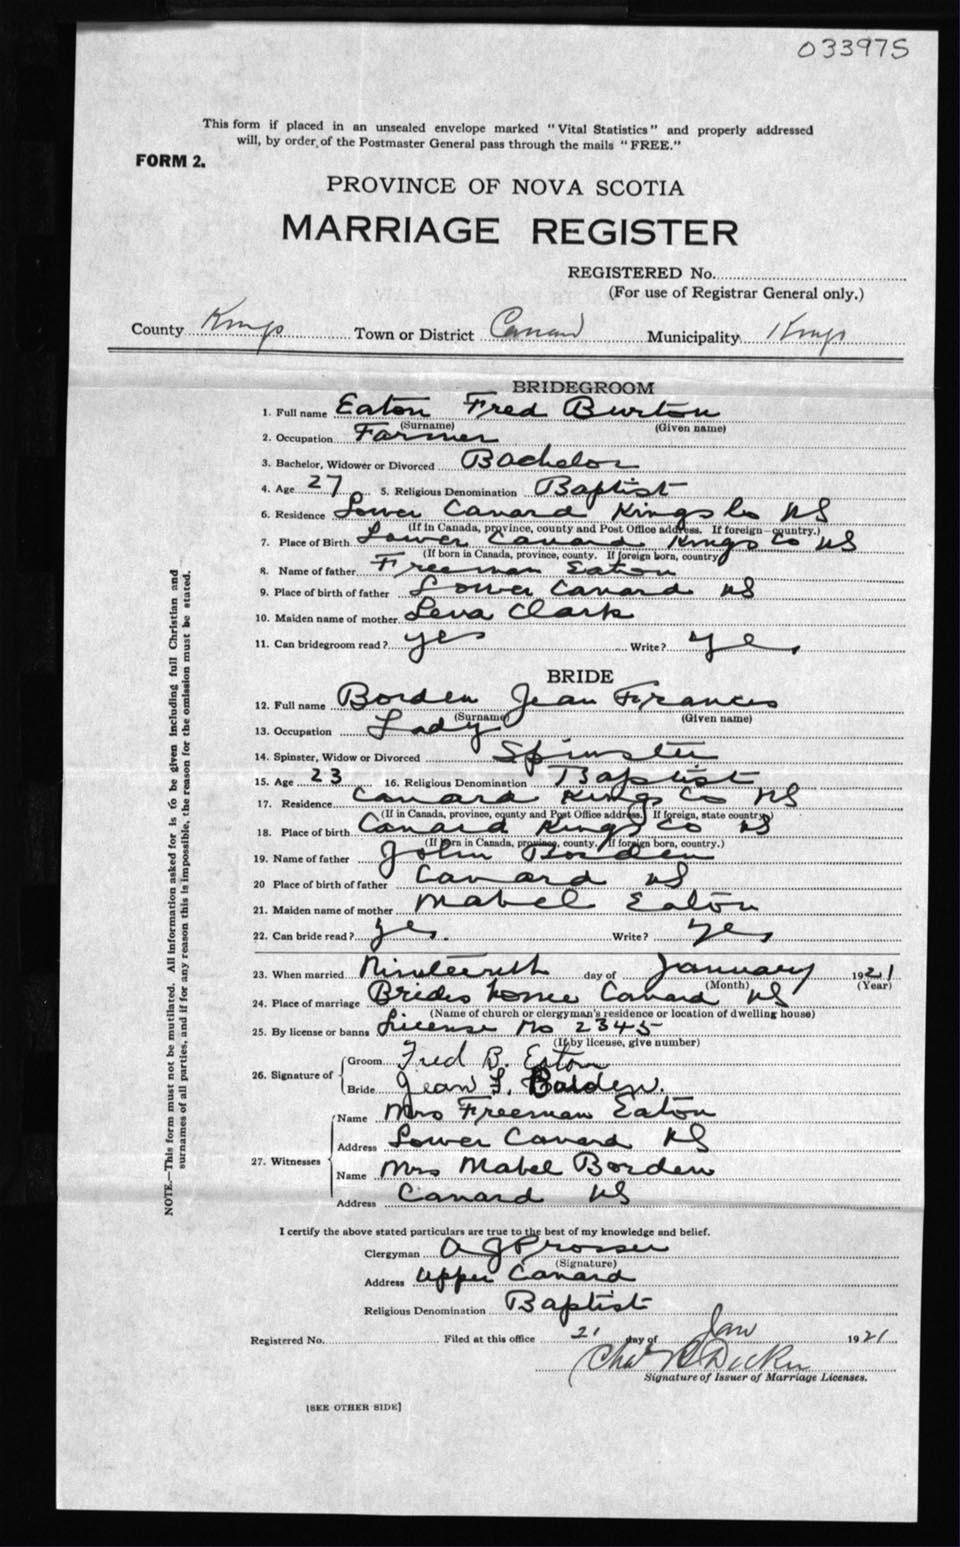 033975
This form if placed in an unsealed envelope marked "Vital Statistics" and properly addressed
will, by order of the Postmaster General pass through the mails "FREE."
FORM 2.
PROVINCE OF NOVA SCOTIA
MARRIAGE REGISTER
REGISTERED No.
(For use of Registrar General only.)
County Kings Town or District Canard Municipality Kings
BRIDEGROOM
1. Full name Eaton Fred Burton
(Surname) (Given name)
2. Occupation Farmer
3. Bachelor, Widower or Divorced Bachelor
4. Age 27 5. Religious Denomination Baptist
6. Residence Lower Canard Kings Co NS
(If in Canada, province, county and Post Office address. If foreign—country.)
7. Place of Birth Lower Canard Kings Co NS
(If born in Canada, province, county. If foreign born, country)
8. Name of father Freeman Eaton
9. Place of birth of father Lower Canard NS
10. Maiden name of mother Leva Clark
11. Can bridegroom read? yes Write? yes
BRIDE
12. Full name Borden Jean Frances
(Surname) (Given name)
13. Occupation Lady
14. Spinster, Widow or Divorced Spinster
15. Age 23 16. Religious Denomination Baptist
17. Residence Canard Kings Co NS
(If in Canada, province, county and Post Office address. If foreign, state country)
18. Place of birth Canard Kings Co NS
(If born in Canada, province, county. If foreign born, country.)
19. Name of father John Borden
20 Place of birth of father Canard NS
21. Maiden name of mother Mabel Eaton
22. Can bride read? yes. Write? yes
23. When married Nineteenth day of January 1921
(Month) (Year)
24. Place of marriage Brides home Canard NS
(Name of church or clergyman's residence or location of dwelling house)
25. By license or banns License No 2345
(If by license, give number)
26. Signature of Groom Fred B. Eaton
Bride Jean F. Borden.
27. Witnesses Name Mrs Freeman Eaton
Address Lower Canard NS
Name Mrs Mabel Borden
Address Canard NS
I certify the above stated particulars are true to the best of my knowledge and belief.
Clergyman A J Prosser
(Signature)
Address Upper Canard
Religious Denomination Baptist
Registered No. Filed at this office 21 day of Jan 1921
Chas
Signature of Issuer of Marriage Licenses.
[SEE OTHER SIDE]
NOTE.—This form must not be mutilated. All information asked for is to be given including full Christian and
surnames of all parties, and if for any reason this is impossible, the reason for the omission must be stated.